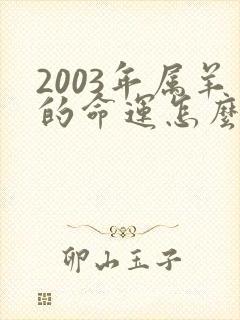 2003年属羊
的命运怎麽
卯山玉子